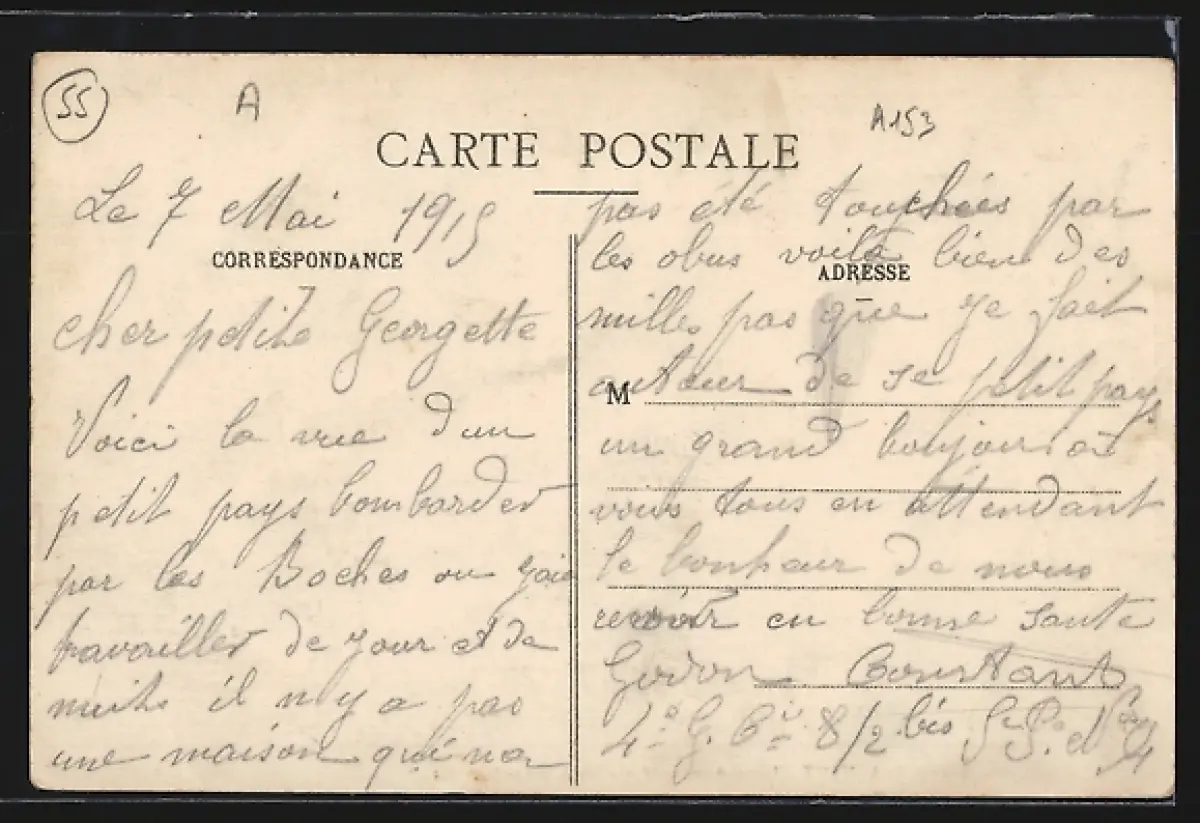 55
A
A153
CARTE POSTALE
Le 7 Mai 1915
CORRESPONDANCE
cher petite Georgette
Voici la vue dun
petit pays bombarder
par les Boches ou jaie
travailler de jour et de
nuits il n'y a pas
une maison qui non
pas été touchées par
les obus voila bien des
ADRESSE
milles pas que je fait
M
autour de se petit pays
un grand boujour a
vous tous en attendant
le bonheur de nous
revoir en bonne sante
Godon Constant
4e G. Cie 8/2 bis